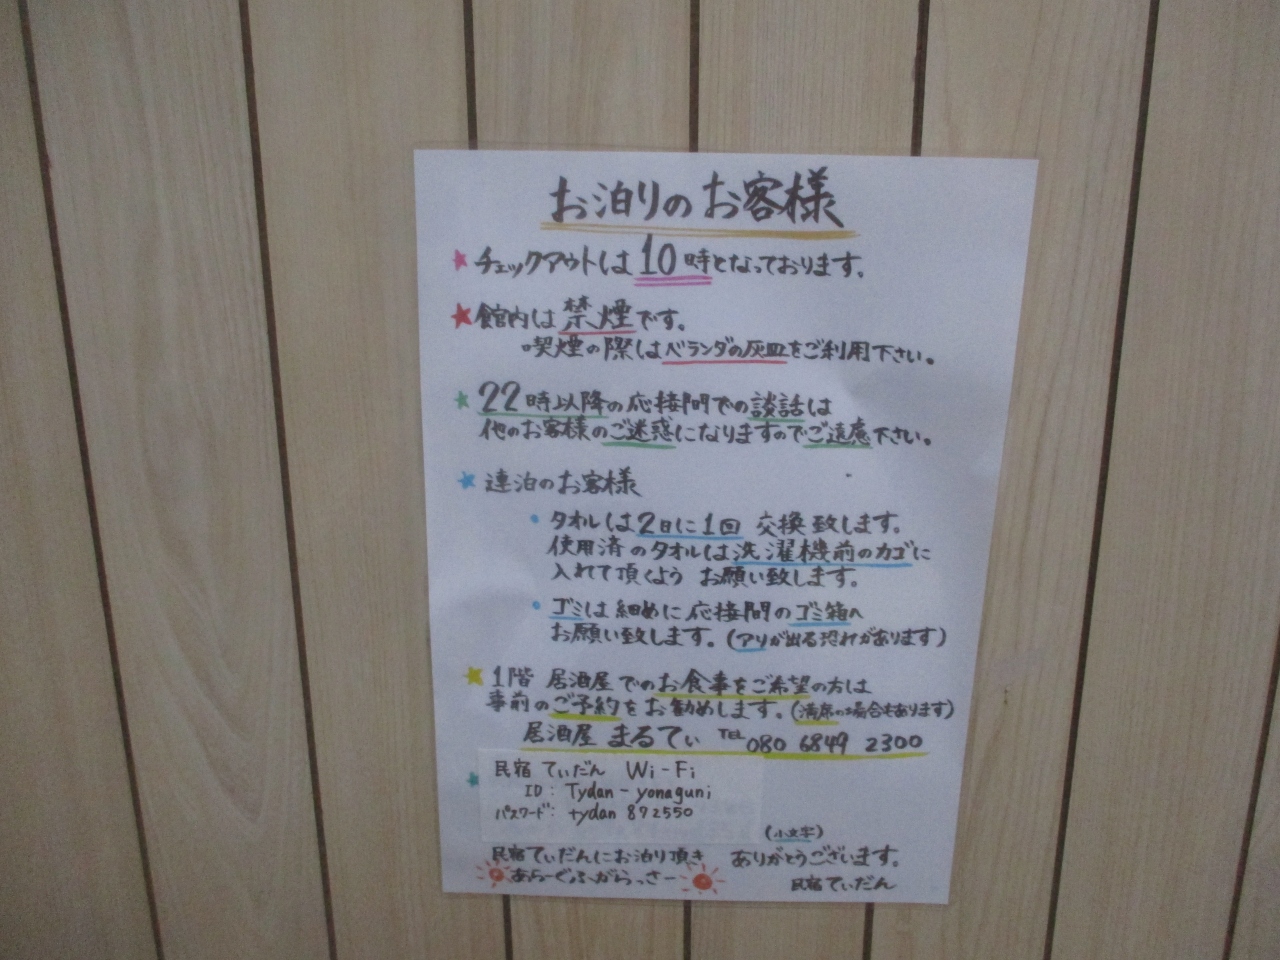 お泊りのお客様
★チェックアウトは10時となっております。
★館内は禁煙です。
喫煙の際はベランダの灰皿をご利用下さい。
★22時以降の応接間での談話は
他のお客様のご迷惑になりますのでご遠慮下さい。
★連泊のお客様
・タオルは2日に1回 交換致します。
使用済のタオルは洗濯機前のカゴに
入れて頂くよう お願い致します。
・ゴミは細めに応接間のゴミ箱へ
お願い致します。(アリが出る恐れがあります)
★1階 居酒屋でのお食事をご希望の方は
事前のご予約をお勧めします。(満席の場合もあります)
居酒屋 まるてぃ TEL 080 6849 2300
★民宿 てぃだん Wi-Fi
ID: Tydan-yonaguni
パスワード: tydan 892550
(小文字)
民宿てぃだんにお泊り頂き ありがとうございます。
あらーぐふがらっさー 民宿てぃだん